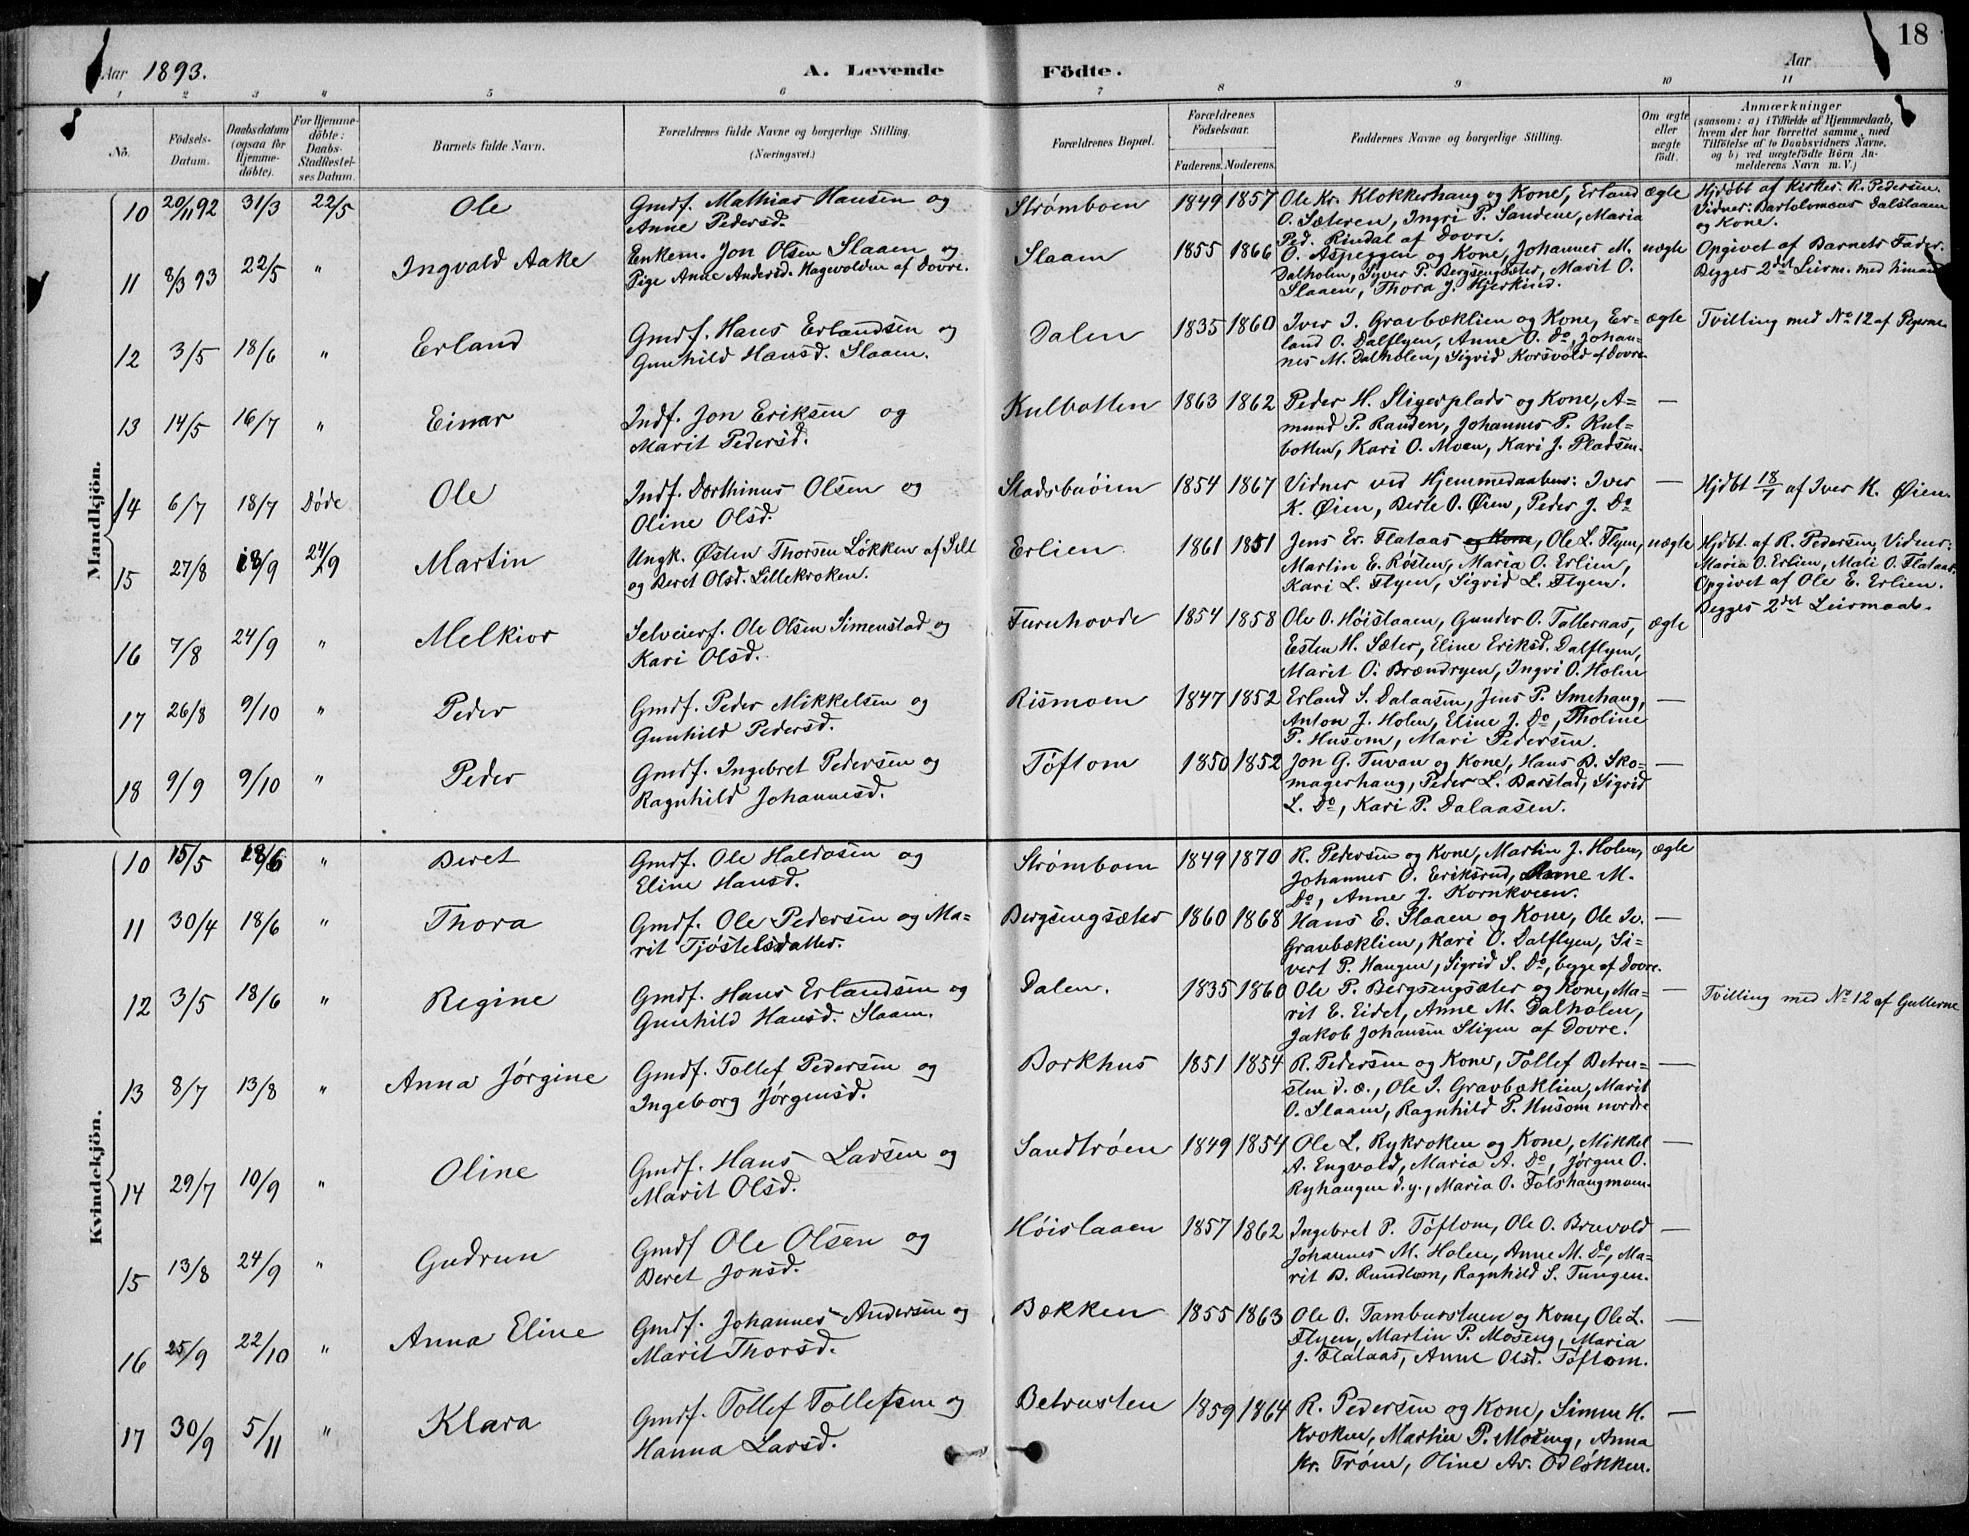 18
Aar 1893. A. Levende Födte. Aar
1 2 3 4 5 6 7 8 9 10 11
No. Födsels-Datum. Daabsdatum (ogsaa for Hjemmedöbte). For Hjemmedöbte: Daabs-Stadfæstelses Datum. Barnets fulde Navn. Forældrenes fulde Navne og borgerlige Stilling. (Næringsvei.) Forældrenes Bopæl. Forældrenes Födselsaar. Faderens. Moderens. Faddernes Navne og borgerlige Stilling. Om ægte eller uægte født. Anmærkninger (saasom: a) i Tilfælde af Hjemmedaab, hvem der har forrettet samme, med Tilföielse af to Daabsvidners Navne, og b) ved uægtefödte Börn Anmelderens Navn m. V.)
Mandkjön.
10 20/11 92 31/3 22/5 Ole Gmdf. Mathias Hansen og Strømboen 1849 1857 Ole Kr. Klokkerhaug og Kone, Erland ægte Hjdøbt af Kirkes. R. Pedersen.
Anne Pedersd. O. Sæteren, Ingri P. Sandene, Maria Vidner: Bartolomæus Dalslaaen
Ped. Rindal af Dovre. og Kone.
11 8/3 93 22/5 " Ingvald Aake Enkem. Jon Olsen Slaaen og Slaaen 1855 1866 O. Aspeggen og Kone, Johannes M. uægte Opgivet af Barnets Fader.
Pige Anne Andersd. Hagevolden af Dovre. Dalholen, Syver P. Bergsengsæter, Marit O. Begges 2det Leierm. med hinand
Slaaen, Thora J. Hjerkind.
12 3/5 18/6 " Erland Gmdf. Hans Erlandsen og Dalen 1835 1860 Iver I. Gravbæklien og Kone, Er- ægte Tvilling med No 12 af Pigerne
Gunhild Hansd. Slaaen. land O. Dalflyen, Anne O. Do, Johan-
nes M. Dalholen, Sigrid Korsvold af Dovre
13 14/5 16/7 " Einar Indf. Jon Eriksen og Kulbotten 1863 1862 Peder H. Stigerplads og Kone, A- —
Marit Pedersd. mund P. Randen, Johannes P. Kul-
botten, Kari O. Moen, Kari J. Pladsen.
14 6/7 18/7 Døde Ole Indf. Dorthinus Olsen og Stadsbuøien 1854 1867 Vidner ved Hjemmedaaben: Iver — Hjdbt 18/7 af Iver K. Øien.
Oline Olsd. K. Øien, Berte O. Øien, Peder J. Do
15 27/8 18/9 24/9 Martin Ungk. Østen Thorsen Løkken af Sell Erlien 1861 1851 Jens Er. Flataas og Kone, Ole L. Flyen, uægte Hjdbt. af R. Pedersen, Vidner:
og Beret Olsd. Lillekroken. Martin E. Røsten, Maria O. Erlien, Maria O. Erlien, Mali O. Flataas.
Kari L. Flyen, Sigrid L. Flyen. Opgivet af Ole E. Erlien.
Begges 2det Leiermaal.
16 7/8 24/9 " Melkior Selveierf. Ole Olsen Simenstad og Furuhovde 1854 1858 Ole O. Høislaaen, Gunder O. Talleraas, ægte
Kari Olsd. Esten H. Sæter, Eline Eriksd. Dalflyen,
Marit O. Brændryen, Ingri O. Holen
17 26/8 9/10 " Peder Gmdf. Peder Mikkelsen og Rismoen 1847 1852 Erland S. Dalaasen, Jens P. Smehaug, —
Gunhild Pedersd. Anton J. Holen, Eline J. Do, Tholine
P. Husom, Mari Pedersen.
18 9/9 9/10 " Peder Gmdf. Ingebret Pedersen og Toftom 1850 1852 Jon G. Tuvan og Kone, Hans B. Sko- —
Ragnhild Johannesd. magerhaug, Peder L. Barstad, Sigrid
L. Do, Kari P. Dalaasen.
Kvindekjön.
10 15/5 18/6 " Beret Gmdf. Ole Haldosen og Strømboen 1849 1870 R. Pedersen og Kone, Martin J. Holen, ægte
Eline Hansd. Johannes O. Eriksrud, Anne M.
Do, Anne J. Kornkveen.
11 30/4 18/6 " Thora Gmdf. Ole Pedersen og Ma- Bergsengsæter 1860 1868 Hans E. Slaaen og Kone, Ole Iv. —
rit Tjøstelsdatter. Gravbæklien, Kari O. Dalflyen, Si-
vert P. Haugen, Sigrid S. Do, begge af Dovre.
12 3/5 18/6 " Regine Gmdf. Hans Erlandsen og Dalen. 1835 1860 Ole P. Bergsengsæter og Kone, Ma- — Tvilling med No 12 af Gutterne
Gunhild Hansd. Slaaen. rit E. Eidet, Anne M. Dalholen,
Jakob Johansen Stigen af Dovre.
13 8/7 13/8 " Anna Jørgine Gmdf. Tollef Pedersen og Borkhus 1851 1854 R. Pedersen og Kone, Tollef Betru- —
Ingeborg Jørgensd. sten d. æ., Ole I. Gravbæklien, Marit
O. Slaaen, Ragnhild P. Husom nordre
14 29/7 10/9 " Oline Gmdf. Hans Larsen og Sandtrøen 1849 1854 Ole L. Rykroken og Kone, Mikkel —
Marit Olsd. A. Engvold, Maria A. Do, Jørgen O.
Ryhaugen d. y., Maria O. Folshaugmoen.
15 13/8 24/9 " Gudrun Gmdf Ole Olsen og Høislaaen 1857 1862 Ingebret P. Toftom, Ole O. Bruvold —
Beret Jonsd. Johannes M. Holen, Anne M. Do, Ma-
rit B. Rundtom, Ragnhild S. Tungen.
16 25/9 22/10 " Anna Eline Gmdf. Johannes Andersen og Bækken 1855 1863 Ole O. Tamburstuen og Kone, Ole L. —
Marit Thorsd. Flyen, Martin P. Moseng, Maria
J. Flataas, Anne Olsd. Toftom.
17 30/9 5/11 " Klara Gmdf. Tollef Tollefsen og Betrusten 1859 1864 R. Pedersen og Kone, Simen H. —
Hanna Larsd. Kroken, Martin P. Moseng, Anna
Kr. Trøen, Oline Ar. Odløkken.